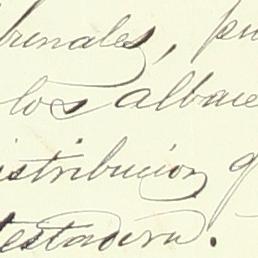 bunales, pu
los albace
istribucion q
testadora.